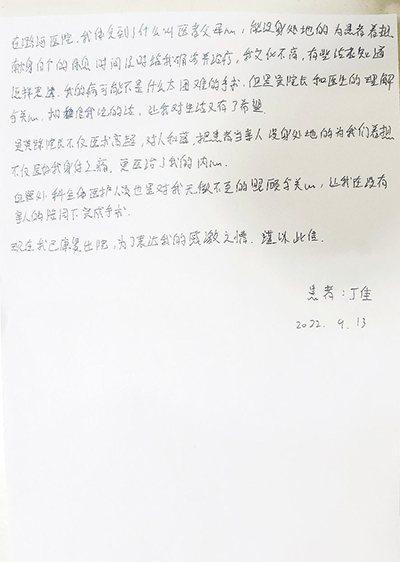 在潞河医院,我体会到了什么叫医者父母心,能设身处地的为患者着想
个的休息时间还时给我解答治疗,我文化不高,有些话不知道
怎样思达.我的病可能不是什么太困难的手术.但是吴院长和医生的理解
与关心.相信我说的话,让我对生活又有了希望.
吴英锋院长不仅医术高超,对人和蔼.把患者当亲人设身处地的为我们着想
不仅医好我身体之病,更医治了我的内心.
血管外科全体医护人员也是对我无微不至的照顾与关心,让我在没有
家人的陪同下完成手术.
现在我已康复出院,为了表达我的感激之情.谨以此信.
患者:丁佳
2022. 9. 13